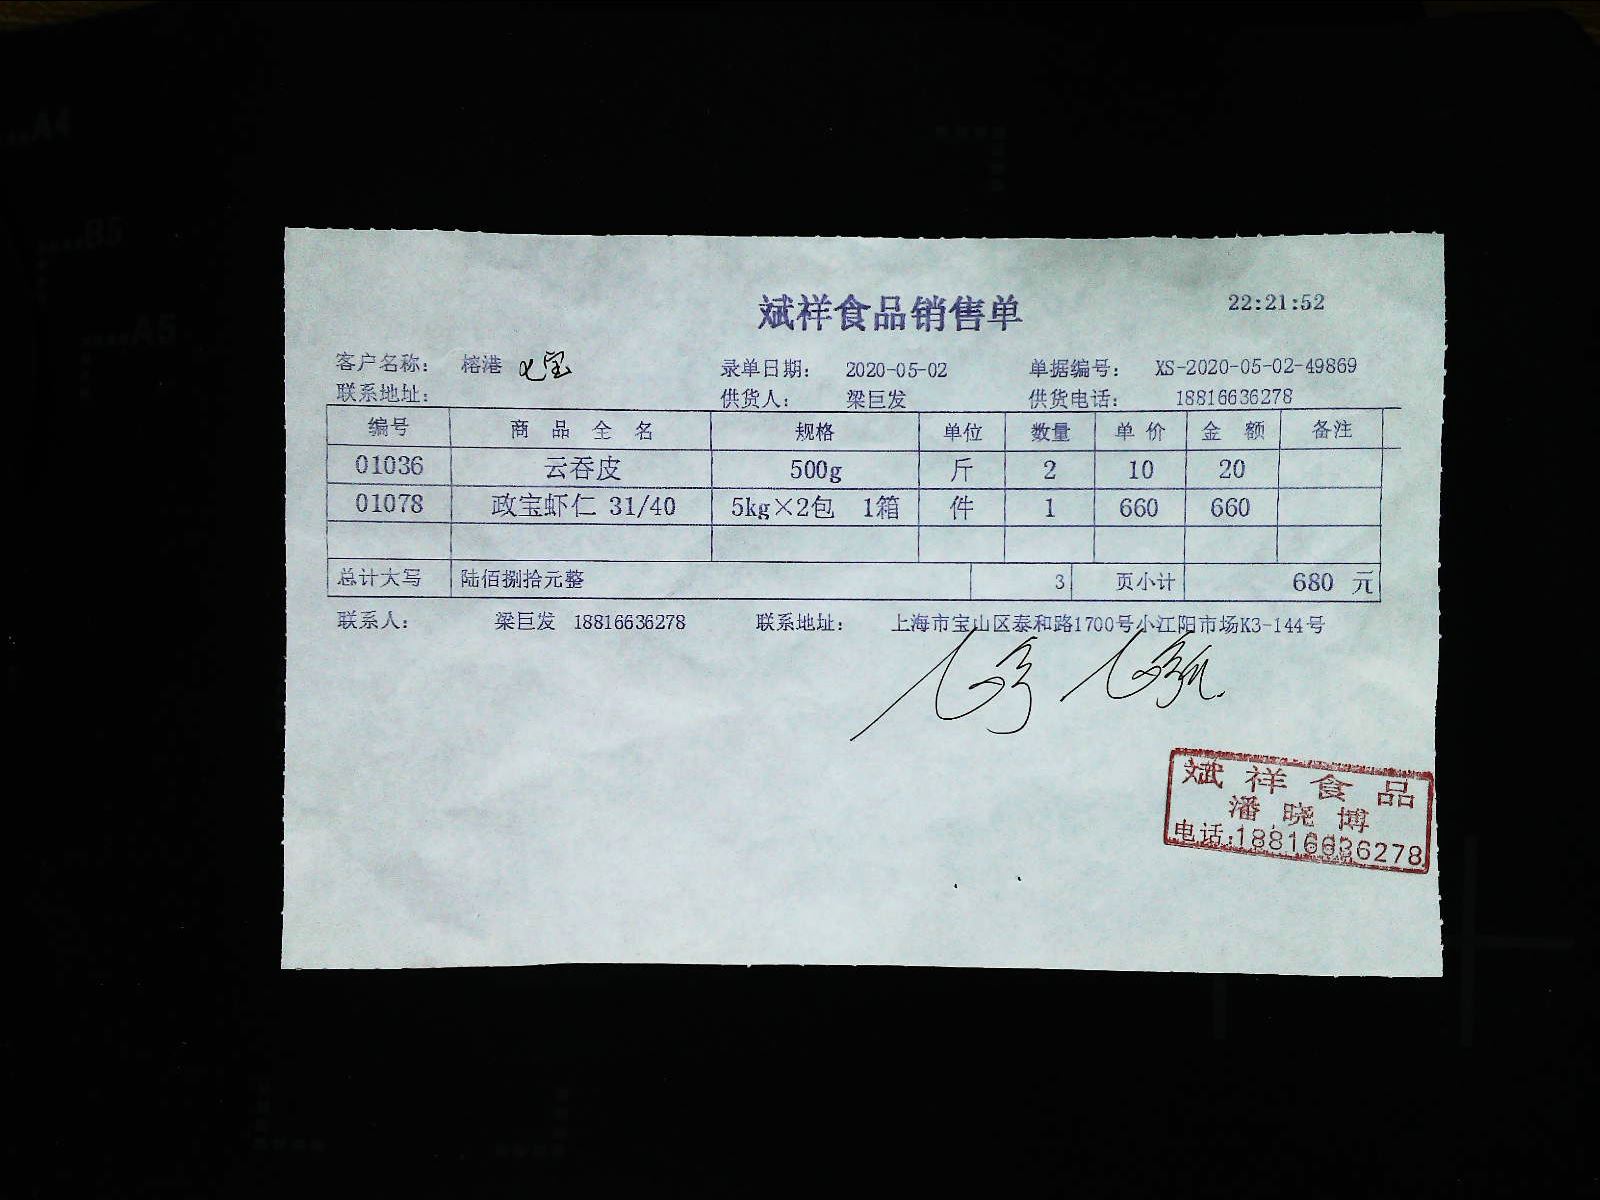 A4
B5
A6
斌祥食品销售单 22:21:52
客户名称： 榕港 七宝 录单日期： 2020-05-02 单据编号： XS-2020-05-02-49869
联系地址： 供货人： 梁巨发 供货电话： 18816636278
编号 商品全名 规格 单位 数量 单价 金额 备注
01036 云吞皮 500g 斤 2 10 20
01078 政宝虾仁 31/40 5kg×2包 1箱 件 1 660 660
总计大写 陆佰捌拾元整 3 页小计 680 元
联系人： 梁巨发 18816636278 联系地址： 上海市宝山区泰和路1700号小江阳市场K3-144号
斌祥食品
潘晓博
电话:18816636278